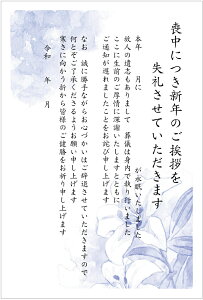 喪中につき新年のご挨拶を
失礼させていただきます
本年　月に
が永眠いたしました
故人の遺志もありまして　葬儀は身内で執り行いました
ここに生前のご厚情に深謝いたしますとともに
ご通知が遅れましたことをお詫び申し上げます
なお　誠に勝手ながらお心づかいはご辞退させていただきますので
何とぞご了承くださるようお願い申し上げます
寒さに向かう折から皆様のご健勝をお祈り申し上げます
令和　年　月